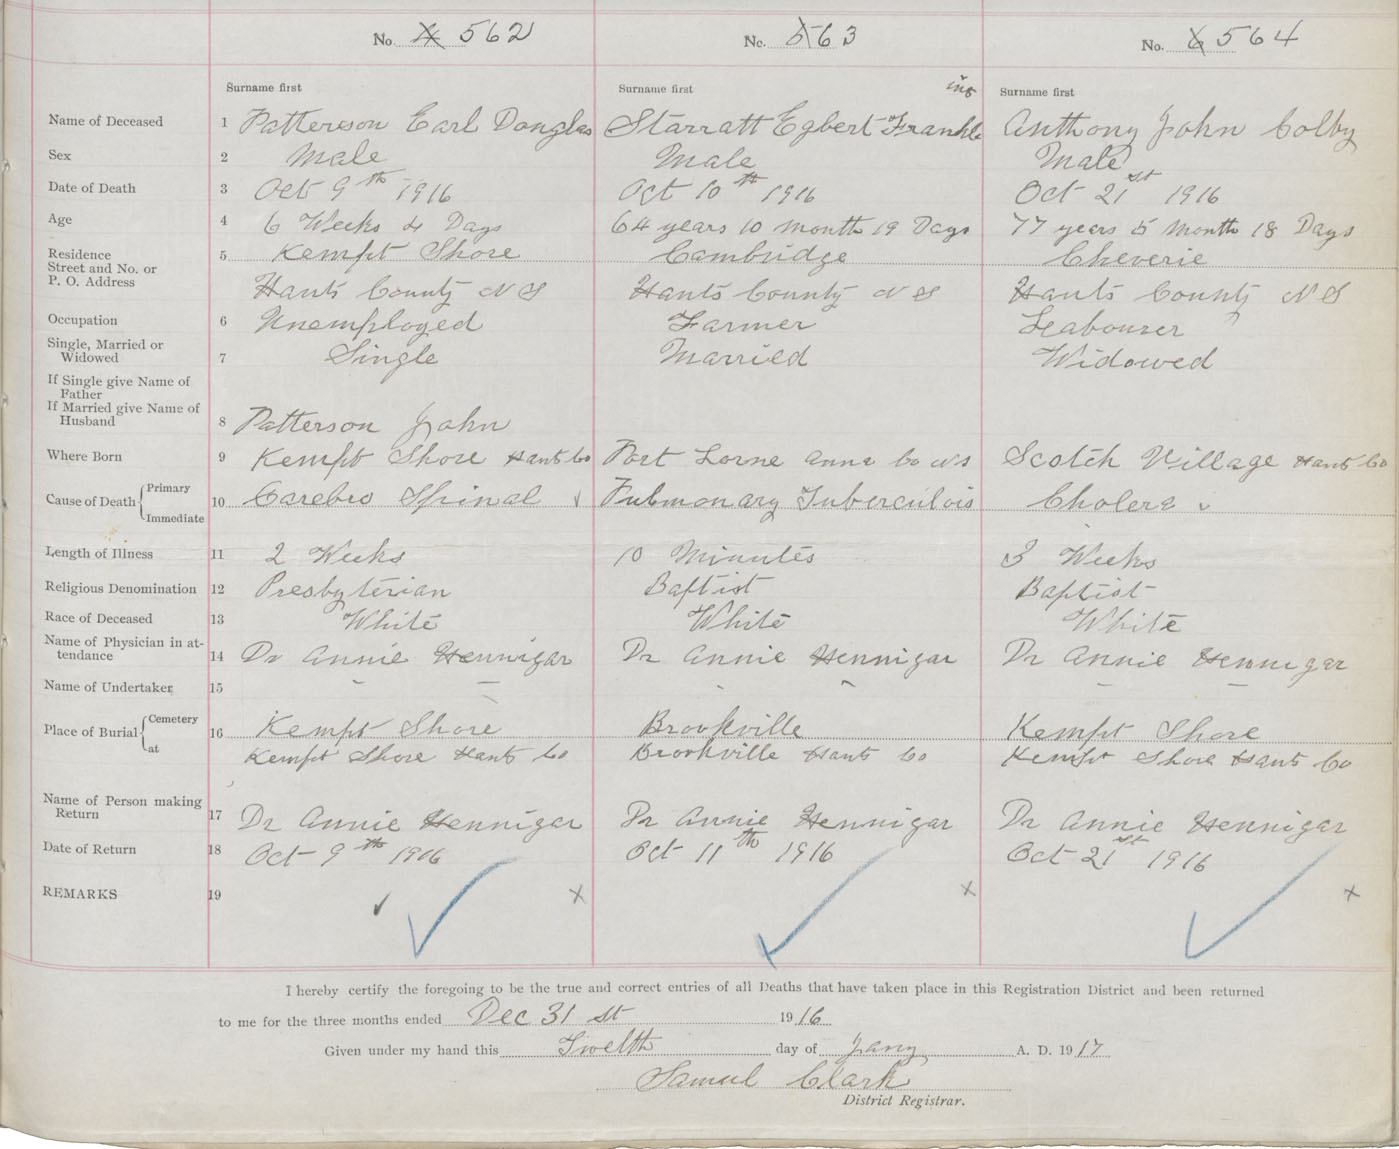 No. 4 562 No. 563 No. 6 564
Surname first Surname first ing Surname first
Name of Deceased 1 Patterson Earl Douglas Starratt Egbert Frankle Anthony John Colby
Sex 2 Male Male Male
Date of Death 3 Oct 9th 1916 Oct 10th 1916 Oct 21st 1916
Age 4 6 Weeks 4 Days 64 years 10 month 19 Days 77 years 5 month 18 Days
Residence Street and No. or P. O. Address 5 Kempt Shore Cambridge Cheverie
Hants County N S Hants County N S Hants County N S
Occupation 6 Unemployed Farmer Labourer
Single, Married or Widowed 7 Single Married Widowed
If Single give Name of Father
If Married give Name of Husband 8 Patterson John
Where Born 9 Kempt Shore Hants Co Port Lorne Anna Co N S Scotch Village Hants Co
Cause of Death { Primary Immediate 10 Carebro Spinal Pulmonary Tuberculois Cholera
Length of Illness 11 2 Weeks 10 Minutes 3 Weeks
Religious Denomination 12 Presbyterian Baptist Baptist
Race of Deceased 13 White White White
Name of Physician in attendance 14 Dr Annie Hennigar Dr Annie Hennigar Dr Annie Hennigar
Name of Undertaker 15
Place of Burial { Cemetery at 16 Kempt Shore Brookville Kempt Shore
Kempt Shore Hants Co Brookville Hants Co Kempt Shore Hants Co
Name of Person making Return 17 Dr Annie Hennigar Dr Annie Hennigar Dr Annie Hennigar
Date of Return 18 Oct 9th 1916 Oct 11th 1916 Oct 21st 1916
REMARKS 19 x x x
I hereby certify the foregoing to be the true and correct entries of all Deaths that have taken place in this Registration District and been returned
to me for the three months ended Dec 31 st 1916
Given under my hand this Twelth day of Jany A. D. 1917
Samuel Clark
District Registrar.